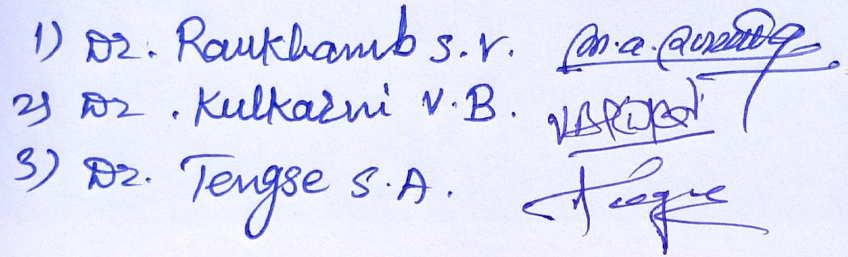 1) Dr. Raukhamb S.V.
2) Dr. Kulkarni V.B.
3) Dr. Tengse S.A.